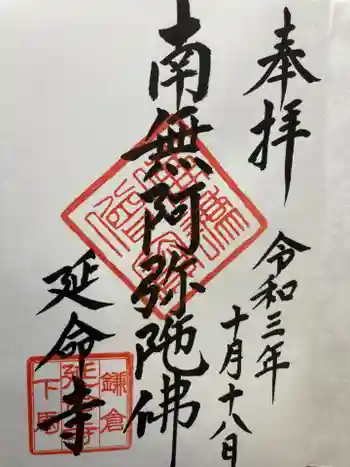 奉拝
令和三年
十月十八日
南無阿弥陀佛
延命寺
鎌倉
延命寺
下馬